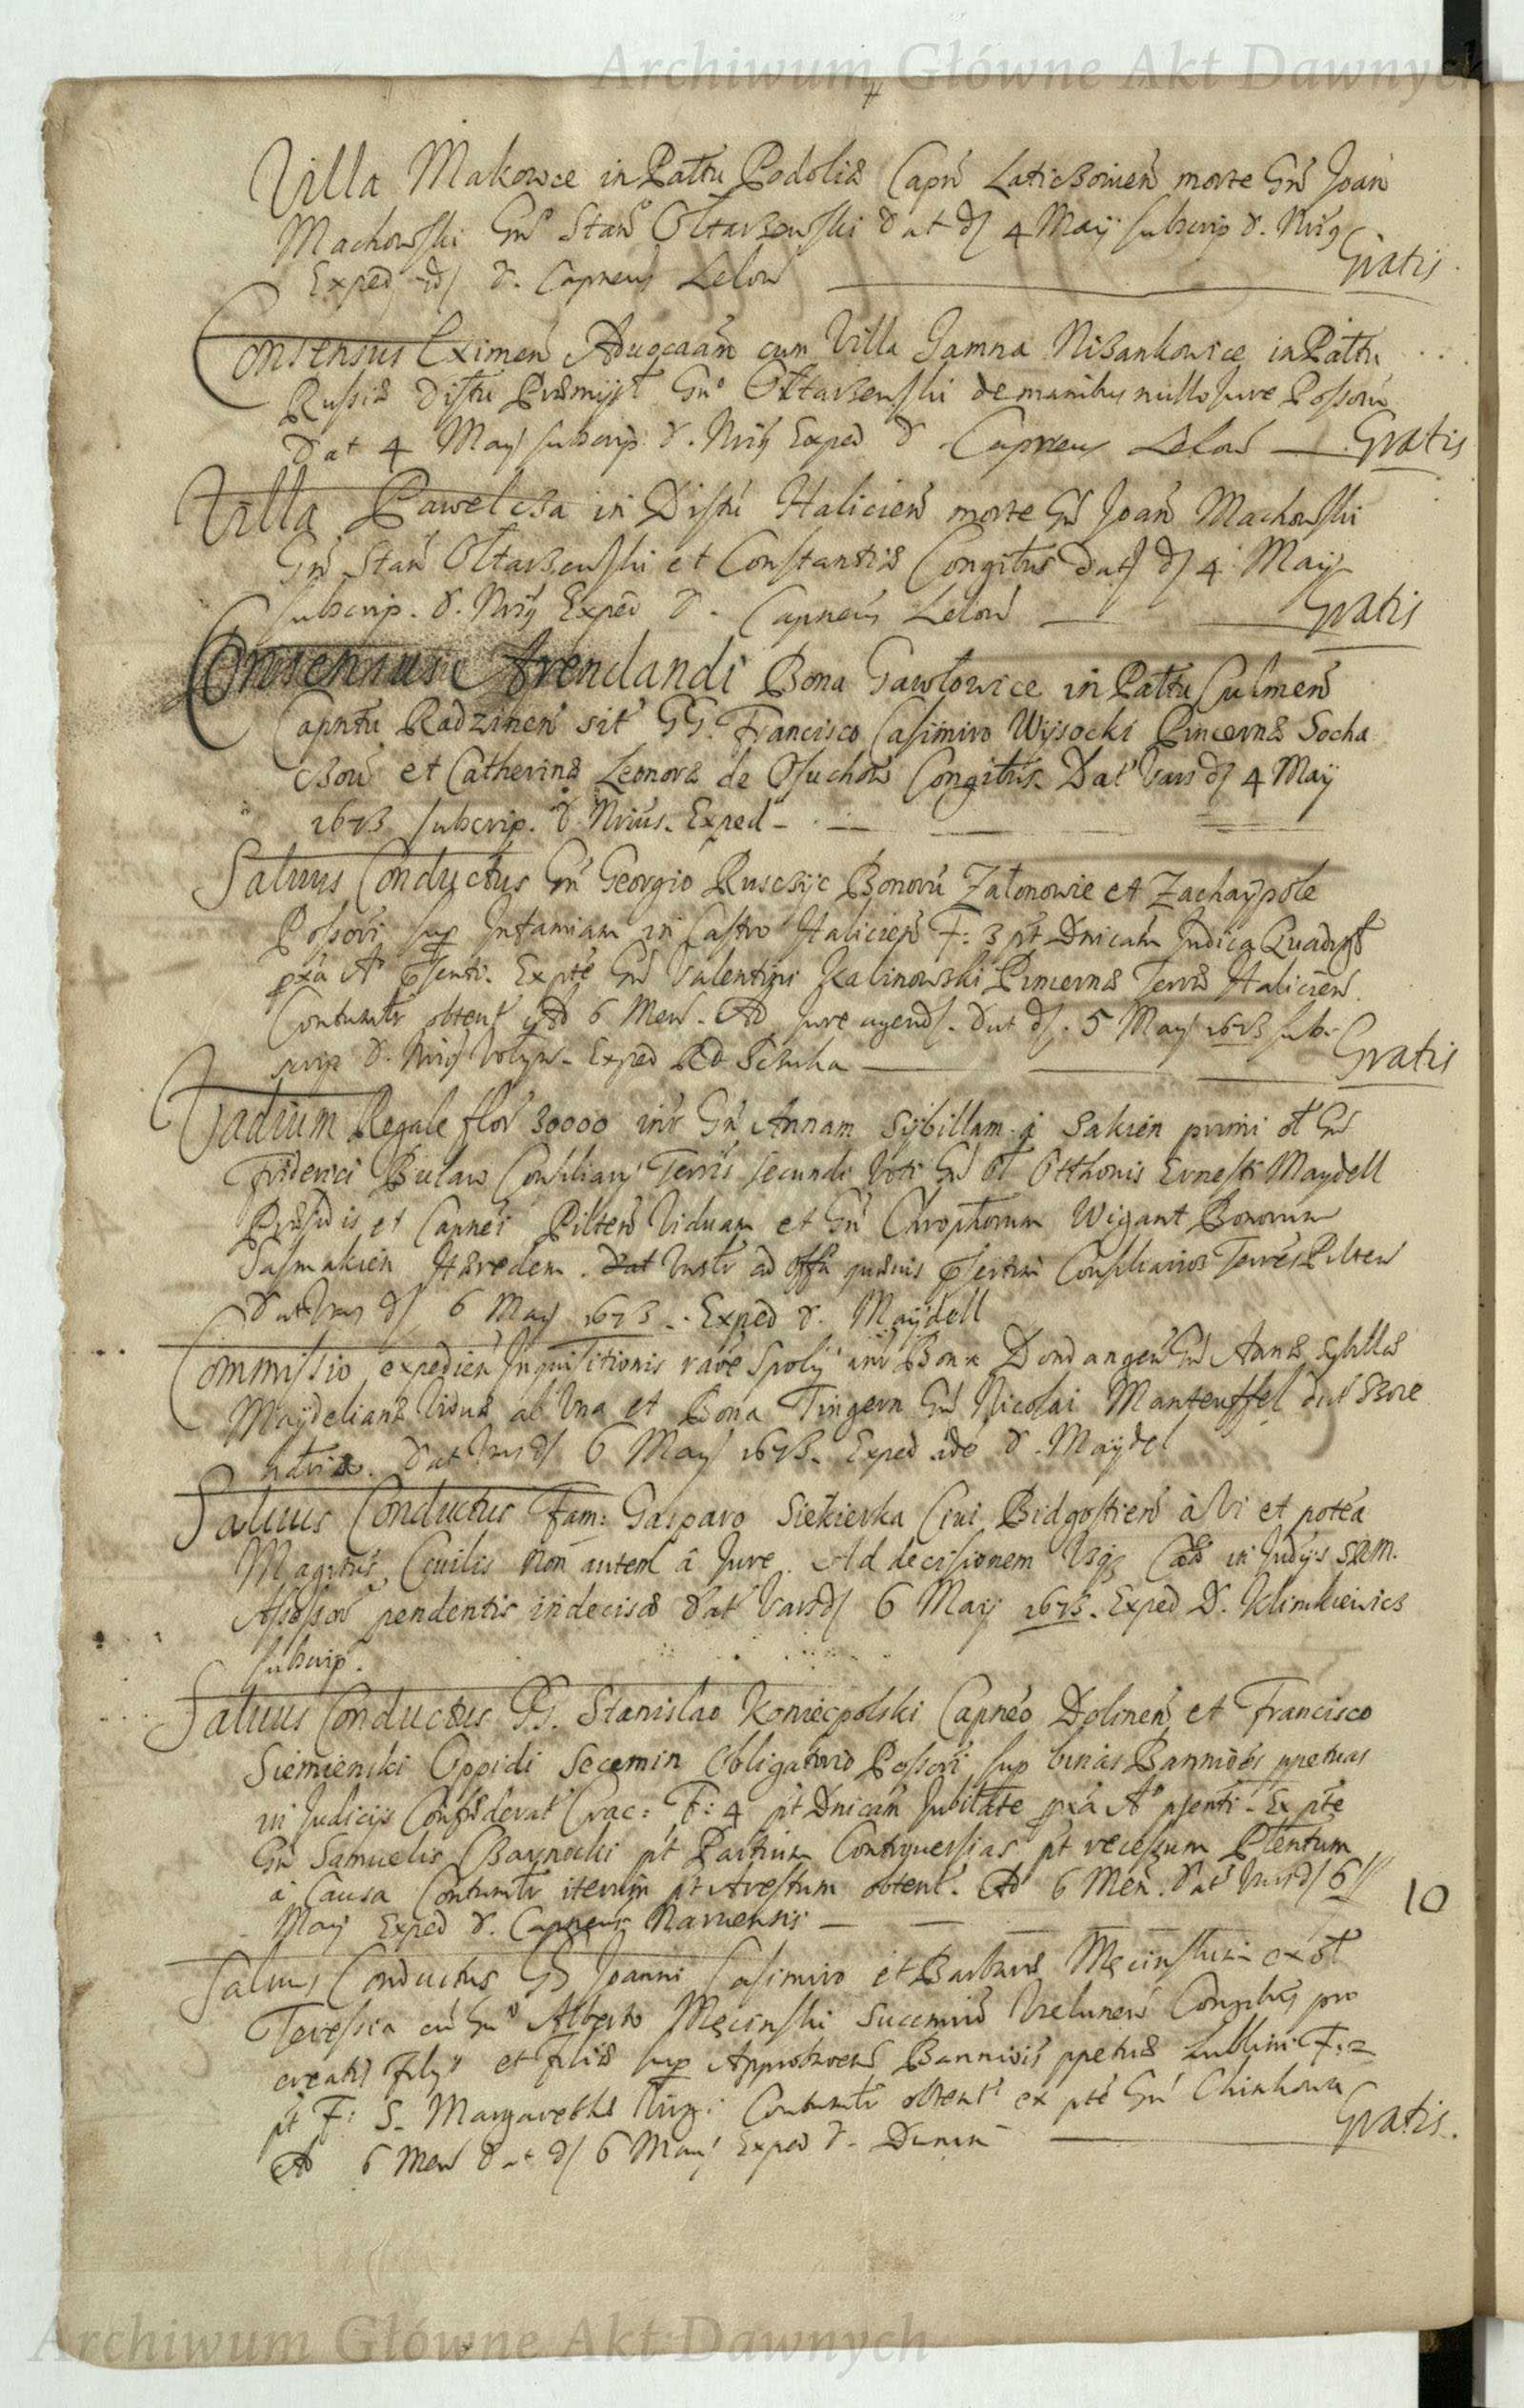 Archiwum Główne Akt Dawnych
Villa Makowce in Pałtu Podoliæ Capñ Laticzovien morte Gñ Joañ
Machowski Gñº Stañº Ołtarzewski Dat d 4 Maÿ subscrip D. Nriq
Exped D. Capneus Lelow Gratis
Consensus Eximen Advocaãm cum Villa Jamna Nizankowice in Pałtu
Russiæ Distru Præmysł Gñº Ołtarzewski de manibus nullo Jure Possoru
Dat 4 Maÿ subscrip D. Nriq Exped D Capneus Lelow Gratis
Villa Pawelcza in Distu Halicień morte Gñ Joañ Machowski
Gñ Stañ Ołtarzewski et Constantiæ Congitus Dat d 4 Maÿ
subscrip. D. Nriq Exped D. Capneus Lelow Gratis
Consensus Arendandi Bona Gawłowice in Pałtu Culmeñ
Capntu Radzineñ sit GG. Francisco Casimiro Wÿsocki Pincernæ Socha
czow et Catherinæ Leonoræ de Osuchow Congitus. Dat Vars d 4 Maÿ
1673 subscrip. D Nrius. Exped
Salvus Conductus Gñ Georgio Rusczÿc Bonorũ Załonowie et Zachaÿpole
Possori sup Infamiam in Castro Halicień F: 3 pt Dnicam Judica Quadrgs
pxa Aº psenti. Expte Gñ Valentini Kalinowski Pincernæ Terræ Halicień
Contumr obtent Ad 6 Men. Ad Jure agend. Dat d. 5 Maÿ 1673 sub
scrip D. Nriq Exped Gratis
Vadium Regale flor 30000 intr Gñ Annam Sÿbillam a Sakień primi ol Gñ
Friderici Bulaw Consiliarÿ Terris secundi Voti Gñ ol Otthonis Ernesti Maydell
Præsidis et Capnei Pilteñ Viduam et Gñ Chroptorum Wigant Bonorum
Sasmakień Hæredem. Dat Instr ad Offa quævis psertim Consiliarios Terres Pilteñ
Dat Vars d 6 Maÿ 1673. Exped D. Maÿdell
Commissio expedień Inquisitionis raõe Spolÿ intr Bona Dondangeñ Gñ Annæ Sybillæ
Maÿdelianæ Viduæ ab Una et Bona Tingern Gñ Nicolai Manteuffel dict Szoe
ab altera. Dat Vars d 6 Maÿ 1673. Exped idẽ D. Maÿdel
Salvus Conductus Fam: Gasparo Siekierka Civi Bidgostień à Vi et potẽa
Magrtus Civilis non autem à Jure. Ad decisionem Usq Cæs in Judÿs SRM.
Assessor pendentis indecisæ Dat Vars d 6 Maÿ 1673. Exped D. Klimkiewicz
subscrip.
Salvus Conductus GG. Stanislao Koniecpolski Capneo Dolineñ et Francisco
Siemienski Oppidi Secemin Obligatorio Possori sup binas Banniões ppetuas
in Judicÿs Confæderat Crac: F: 4 pt Dnicam Jubilate pxa Aº psenti. Ex pte
Gñ Samuelis Czarnocki pt Partium Controversias pt recessum Pltentum
à Causa Contumr iterum pt Arestum obtent. Ad 6 Men. Dat Vars d 6
Maÿ Exped D. Capneus Narvensis
10
Salvus Conductus GG Joanni Casimiro et Barbaræ Męcinskim ex ol
Teressia cũ Gñº Alberto Męcinski Succam Veluneñ Congibus pro
creatis Filÿs et Filiæ sup Approbatæ Banniõis ppetuæ Lublini F: 2
pt F: S. Margarethæ Virg: Contumr obtent ex pte Gñ Chinkowa
Ad 6 Men Dat d 6 Maÿ Exped D. Dunin Gratis.
Archiwum Główne Akt Dawnych